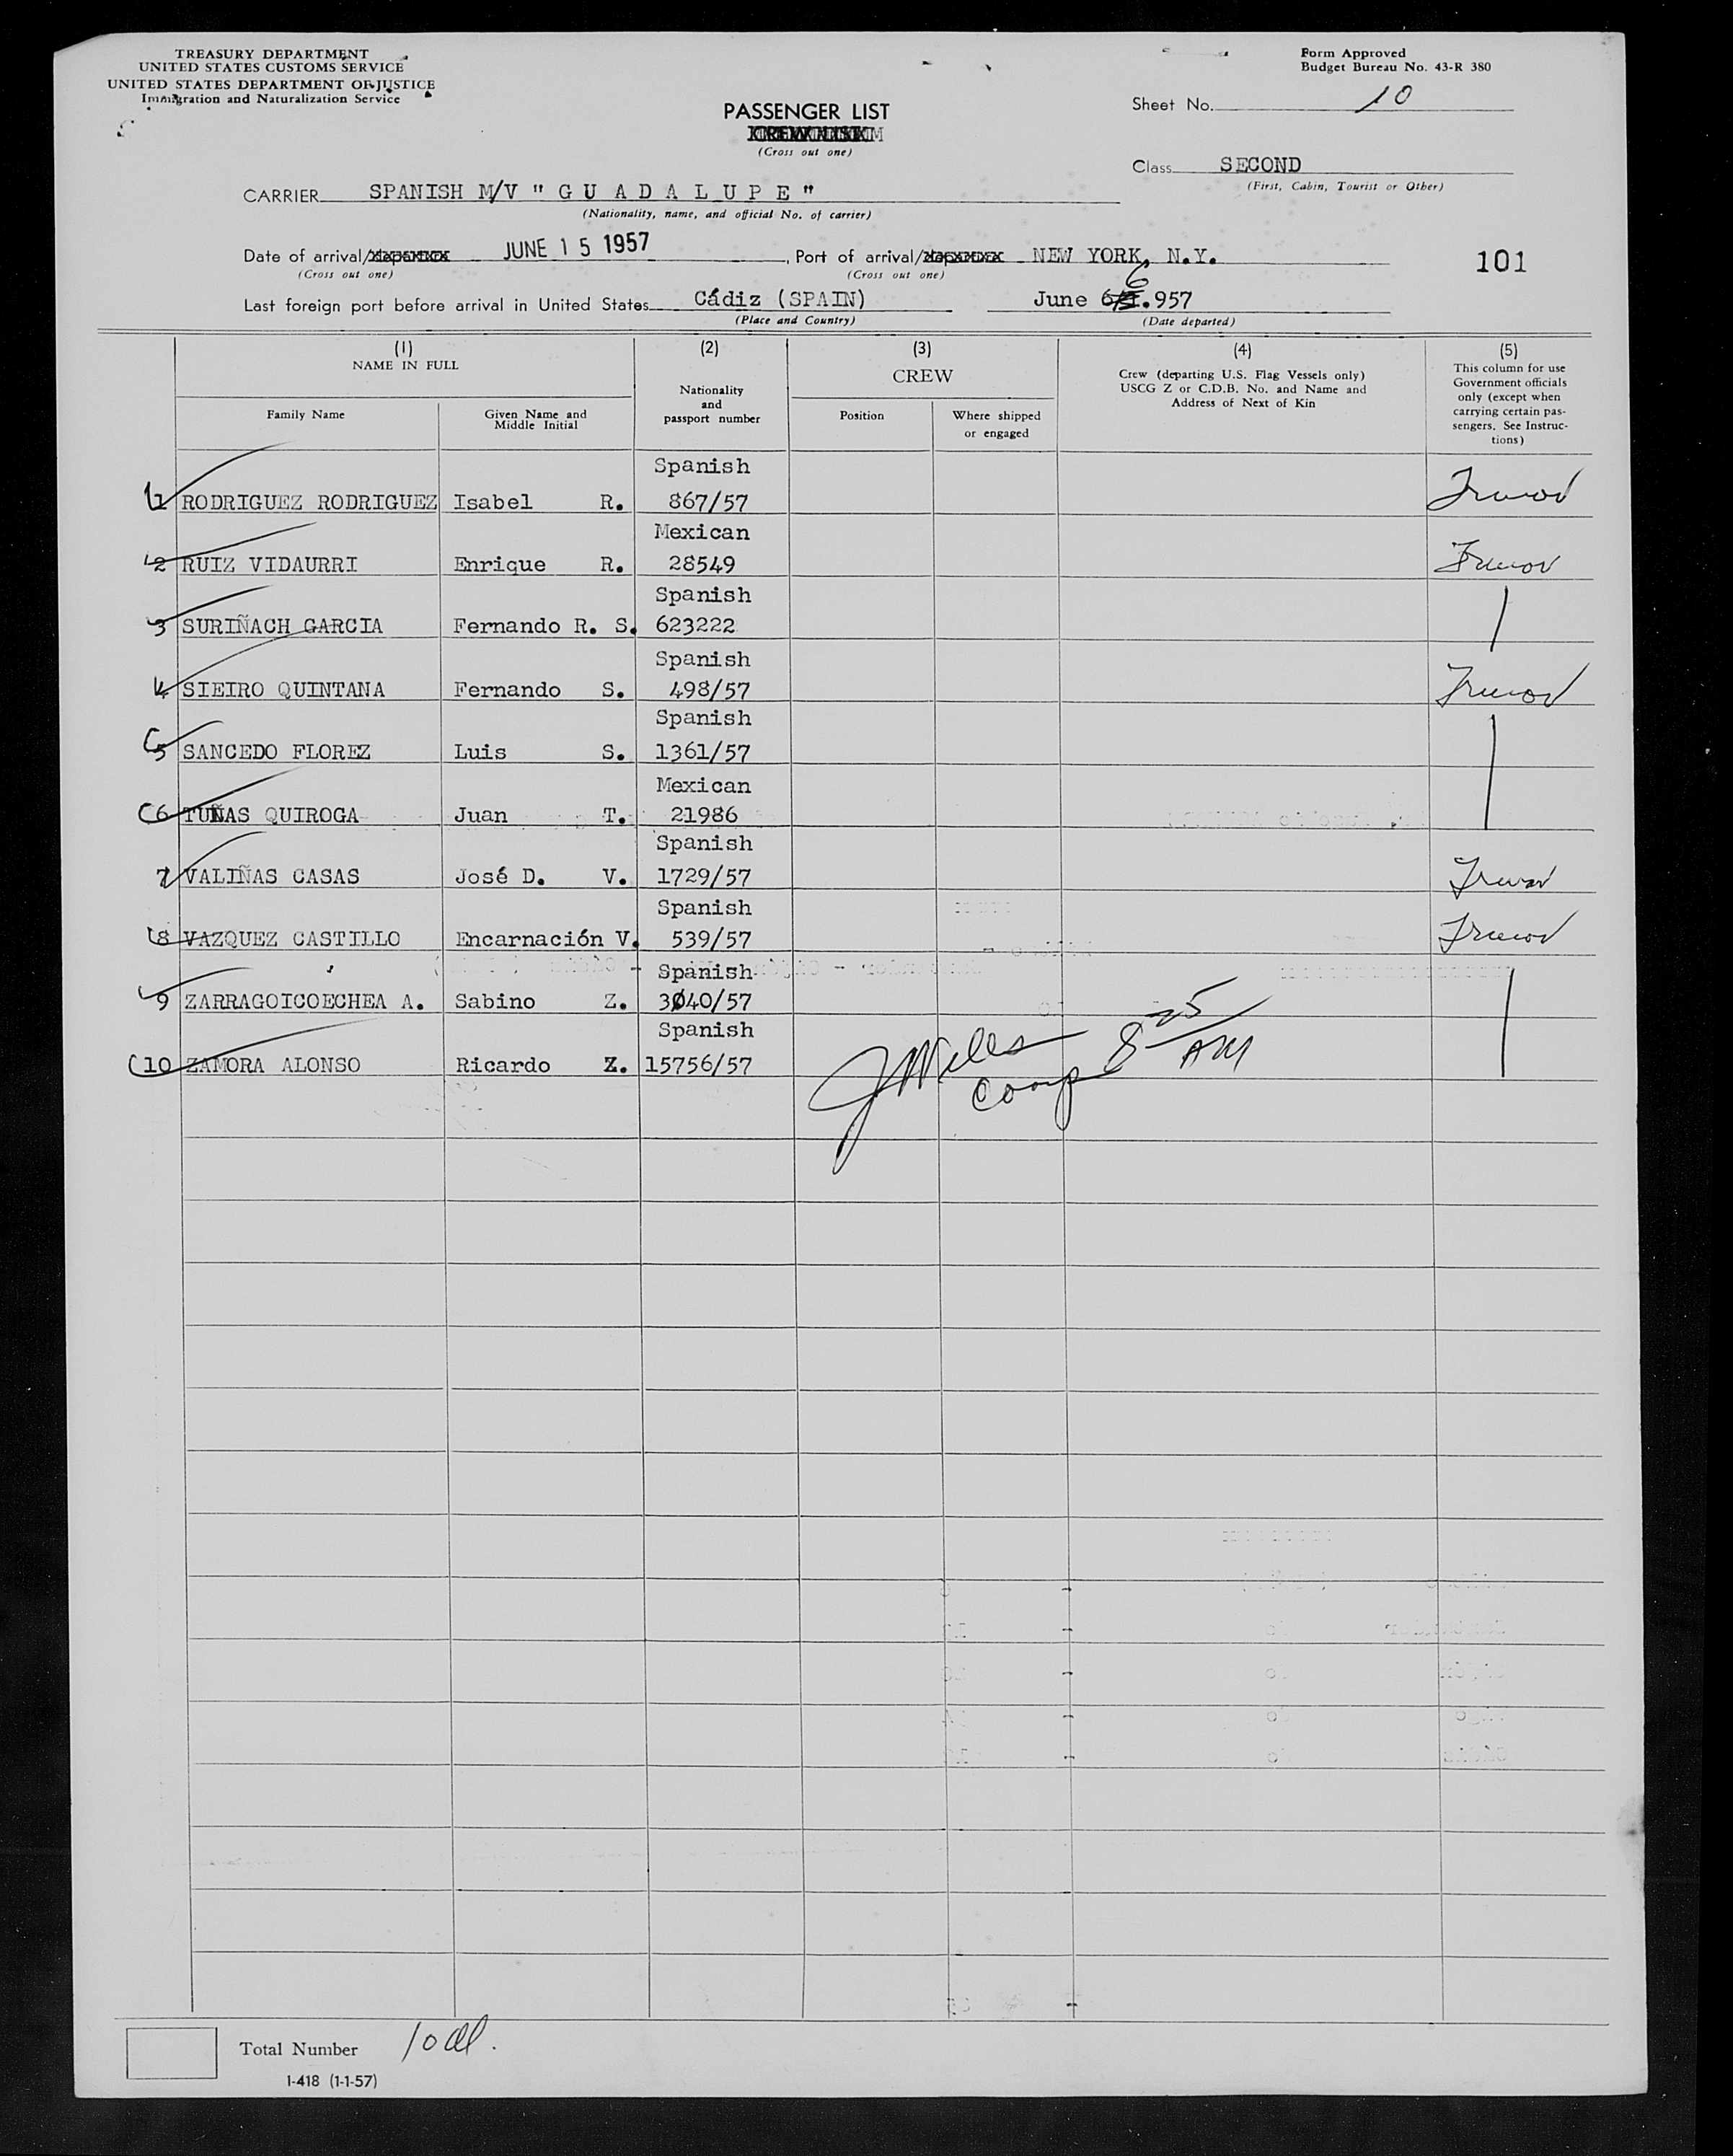 TREASURY DEPARTMENT
UNITED STATES CUSTOMS SERVICE
UNITED STATES DEPARTMENT OF JUSTICE
Immigration and Naturalization Service
Form Approved
Budget Bureau No. 43-R 380
PASSENGER LIST
(Cross out one)
Sheet No. 10
Class SECOND
(First, Cabin, Tourist or Other)
CARRIER SPANISH M/V "G U A D A L U P E"
(Nationality, name, and official No. of carrier)
Date of arrival/ JUNE 15 1957, Port of arrival/ NEW YORK, N.Y.
(Cross out one) (Cross out one)
101
Last foreign port before arrival in United States Cádiz (SPAIN) June 6 957
(Place and Country) (Date departed)
(1) NAME IN FULL
Family Name
Given Name and Middle Initial
(2)
Nationality and passport number
(3)
CREW
Position
Where shipped or engaged
(4)
Crew (departing U.S. Flag Vessels only)
USCG Z or C.D.B. No. and Name and
Address of Next of Kin
(5)
This column for use
Government officials
only (except when
carrying certain pas-
sengers. See Instruc-
tions)
Spanish
1 RODRIGUEZ RODRIGUEZ Isabel R. 867/57
Mexican
2 RUIZ VIDAURRI Enrique R. 28549
Spanish
3 SURIÑACH GARCIA Fernando R. S. 623222
Spanish
4 SIEIRO QUINTANA Fernando S. 498/57
Spanish
5 SANCEDO FLOREZ Luis S. 1361/57
Mexican
6 TUÑAS QUIROGA Juan T. 21986
Spanish
7 VALIÑAS CASAS José D. V. 1729/57
Spanish
8 VAZQUEZ CASTILLO Encarnación V. 539/57
Spanish
9 ZARRAGOICOECHEA A. Sabino Z. 3040/57
Spanish
10 ZAMORA ALONSO Ricardo Z. 15756/57
8 25 AM
Comp
Total Number 10
I-418 (1-1-57)